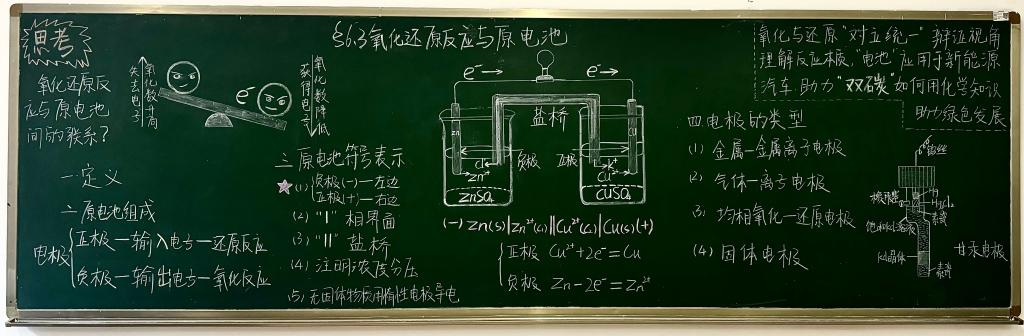 §6.3氧化还原反应与原电池
思考
氧化还原反
应与原电池
间的联系?
失去电子
氧化数升高
e⁻
获得电子
氧化数降低
一.定义
二.原电池组成
电极
正极—输入电子—还原反应
负极—输出电子—氧化反应
三.原电池符号表示
(1) 负极(-)—左边
正极(+)—右边
(2) "|" 相界面
(3) "||" 盐桥
(4) 注明浓度分压
(5) 无固体物质用惰性电极导电
e⁻
e⁻
盐桥
Zn
Cu
负极
正极
Cl⁻
K⁺
Zn²⁺
Cu²⁺
ZnSO₄
CuSO₄
(-) Zn(s)|Zn²⁺(c₁)||Cu²⁺(c₂)|Cu(s)(+)
正极 Cu²⁺+2e⁻=Cu
负极 Zn-2e⁻=Zn²⁺
氧化与还原"对立统一"辩证视角
理解反应本质,"电池"应用于新能源
汽车助力"双碳"如何用化学知识
助力绿色发展
四.电极的类型
(1) 金属—金属离子电极
(2) 气体—离子电极
(3) 均相氧化—还原电极
(4) 固体电极
铂丝
橡胶塞
Hg
Hg₂Cl₂
素瓷
饱和KCl溶液
KCl晶体
素瓷
甘汞电极